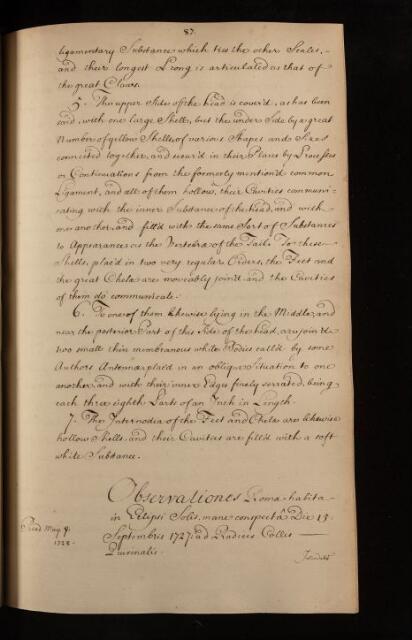 87.
ligamentary Substance which ties the other Scales,
and their longest Prong is articulated as that of
the great Claws.
5. The upper Side of the head is cover'd, as has been
said, with one large Shell, but the under Side by a great
Number of yellow Shells, of various Shapes and Sizes
connected together, and secur'd in their Places by Processes
or Continuations from the formerly mention'd common
Ligament, and all of them hollow, their Cavities communi-
cating with the inner Substance of the head, and with
one another, and fill'd with the same Sort of Substance
to Appearance as the Vertebræ of the Tail. To these
Shells, plac'd in two very regular Orders, the Feet and
the great Chelæ are moveably join'd and the Cavities
of them do communicate.
6. To one of them likewise lying in the Middle, and
near the posterior Part of this Side of the head, are join'd
two small thin membranous white Bodies call'd by some
Authors Antennæ, plac'd in an oblique Situation to one
another, and with their inner Edges finely serrated, being
each three eighth Parts of an Inch in Length.
7. The Internodia of the Feet and Chelæ are likewise
hollow Shells, and their Cavities are fill'd with a soft
white Substance.
Observationes Romæ habitæ
in Eclipsi Solis, mane conspectâ Die 15
Read May 9.
1728.
Septembris 1727. ad Radices Collis
Quirinalis.